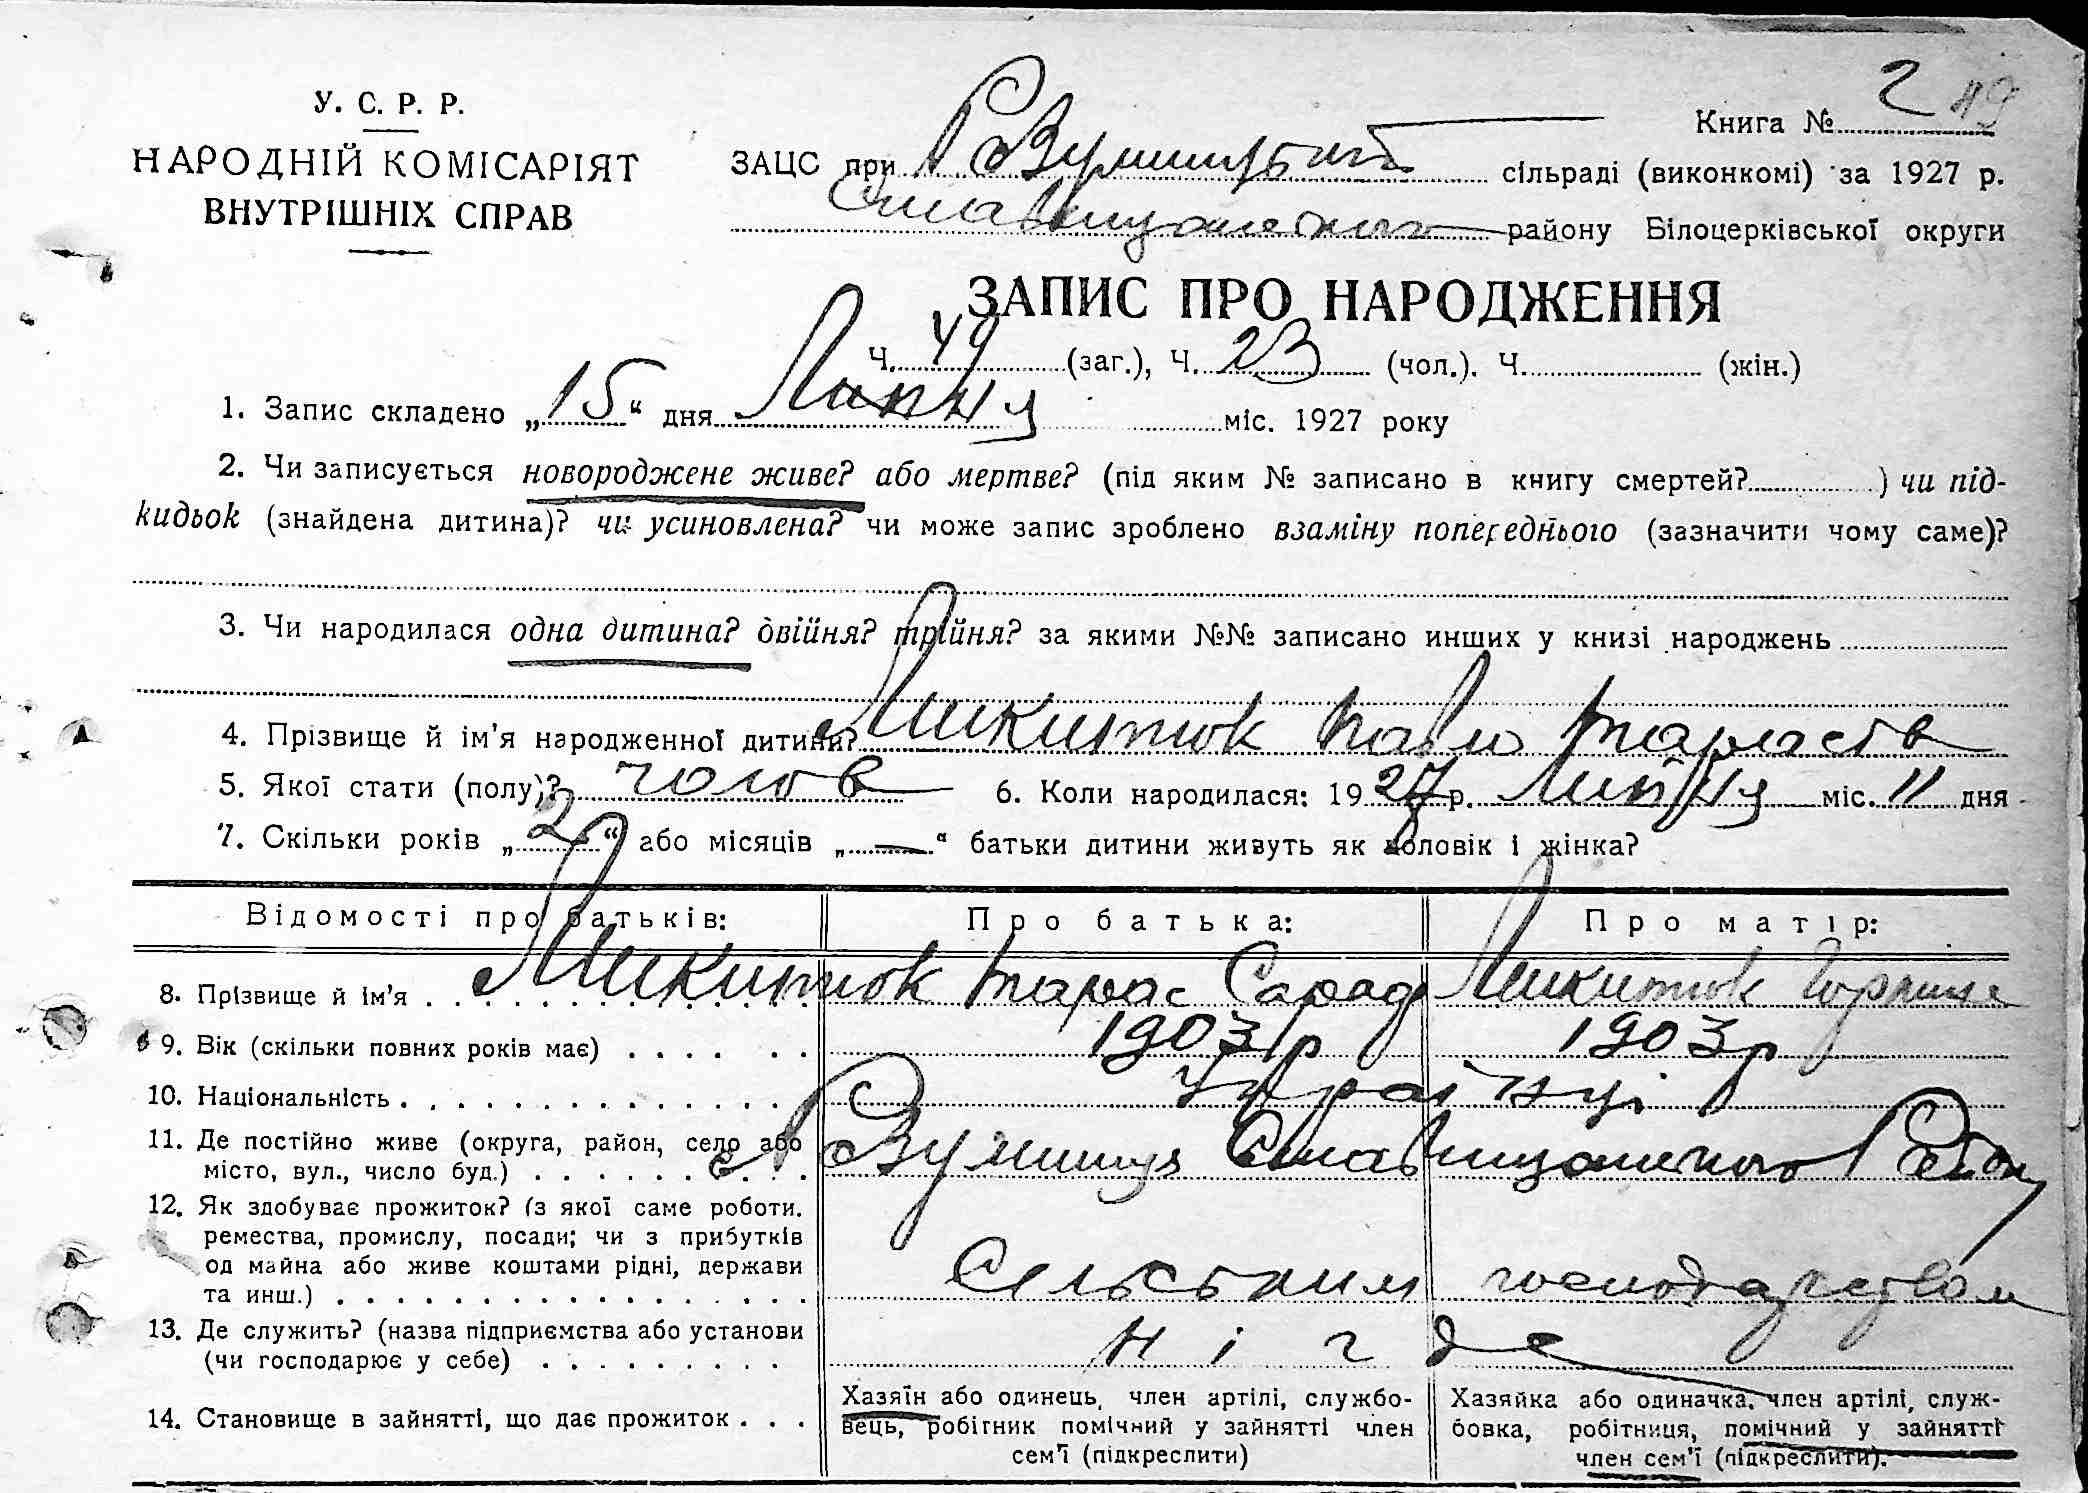 У. С. Р. Р.
НАРОДНІЙ КОМІСАРІЯТ
ВНУТРІШНІХ СПРАВ
Книга № 2 49
ЗАЦС при Розумницькій сільраді (виконкомі) за 1927 р.
Ставищанського району Білоцерківської округи
ЗАПИС ПРО НАРОДЖЕННЯ
Ч. 49 (заг.), Ч. 23 (чол.). Ч. (жін.)
1. Запис складено „15“ дня Липня міс. 1927 року
2. Чи записується новороджене живе? або мертве? (під яким № записано в книгу смертей? ) чи під-
кидьок (знайдена дитина)? чи усиновлена? чи може запис зроблено взаміну попереднього (зазначити чому саме)?
3. Чи народилася одна дитина? двійня? трійня? за якими №№ записано инших у книзі народжень
4. Прізвище й ім'я народженної дитини? Микитюк Павло Тарасов
5. Якої стати (полу)? чолов 6. Коли народилася: 1927 р. Липня міс. 11 дня
7. Скільки років „2“ або місяців „—“ батьки дитини живуть як чоловік і жінка?
Відомості про батьків: Про батька: Про матір:
8. Прізвище й ім'я Микитюк Тарас Микитюк Горпина
9. Вік (скільки повних років має) 1903 р 1903 р
10. Національність Українці
11. Де постійно живе (округа, район, село або
місто, вул., число буд.) с Розумниця Ставищанського Району
12. Як здобуває прожиток? (з якої саме роботи.
ремества, промислу, посади; чи з прибутків
од майна або живе коштами рідні, держави
та инш.) Сільським господарством
13. Де служить? (назва підприємства або установи
(чи господарює у себе) нігде
14. Становище в зайнятті, що дає прожиток
Хазяїн або одинець, член артілі, службо-
вець, робітник помічний у зайнятті член
сем'ї (підкреслити)
Хазяйка або одиначка, член артілі, служ-
бовка, робітниця, помічний у зайнятті
член сем'ї (підкреслити).